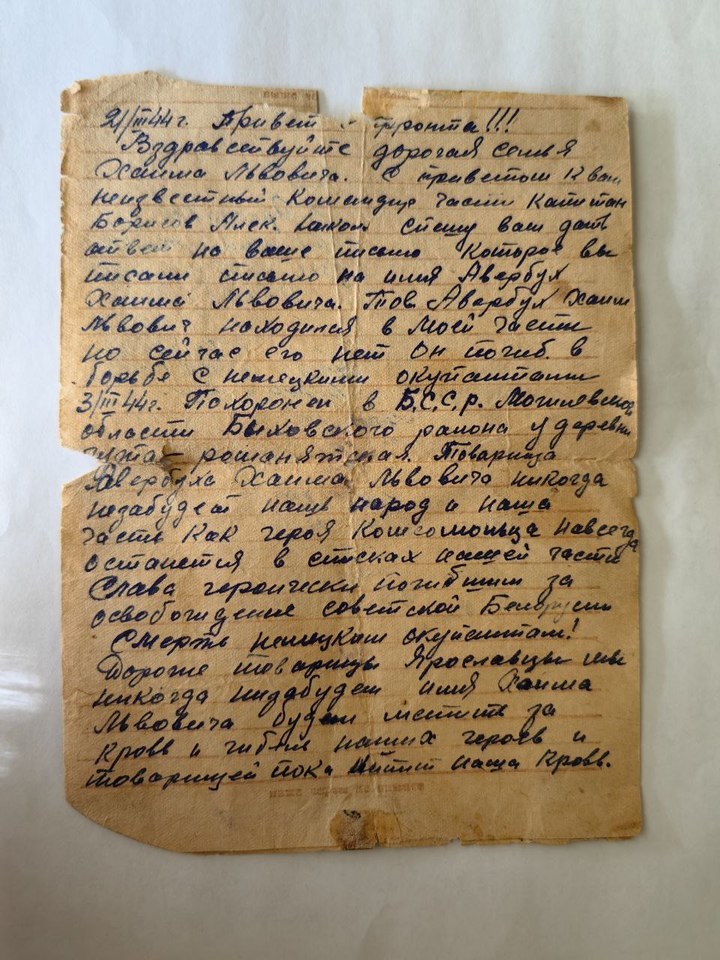 21/III 44 г. Привет с фронта!!!
Вздравствуйте дорогая семья
Хаима Львовича. С приветом к вам
неизвестный командир части Капитан
Борисов Алек. Никол спешу вам дать
ответ на ваше письмо которое вы
писали письмо на имя Авербух
Хаима Львовича. Тов. Авербух Хаим
Львович находился в моей части
но сейчас его нет Он погиб в
борьбе с немецкими окупантами
3/III 44 г. Похоронен в Б.С.С.р. Могилевской
области Быховского района у деревни
Товарища
Авербуха Хаима Львовича никогда
незабудет наш народ и наша
часть Как героя Комсомольца навсегда
останется в списках нашей части
Слава героически погибшим за
освобождение советской Белорусии
Смерть немецким окупантам!
Дорогие товарищи Ярославцы мы
никогда низабудем имя Хаима
Львовича будем мстить за
кровь и гибель наших героев и
товарищей пока наша кровь.